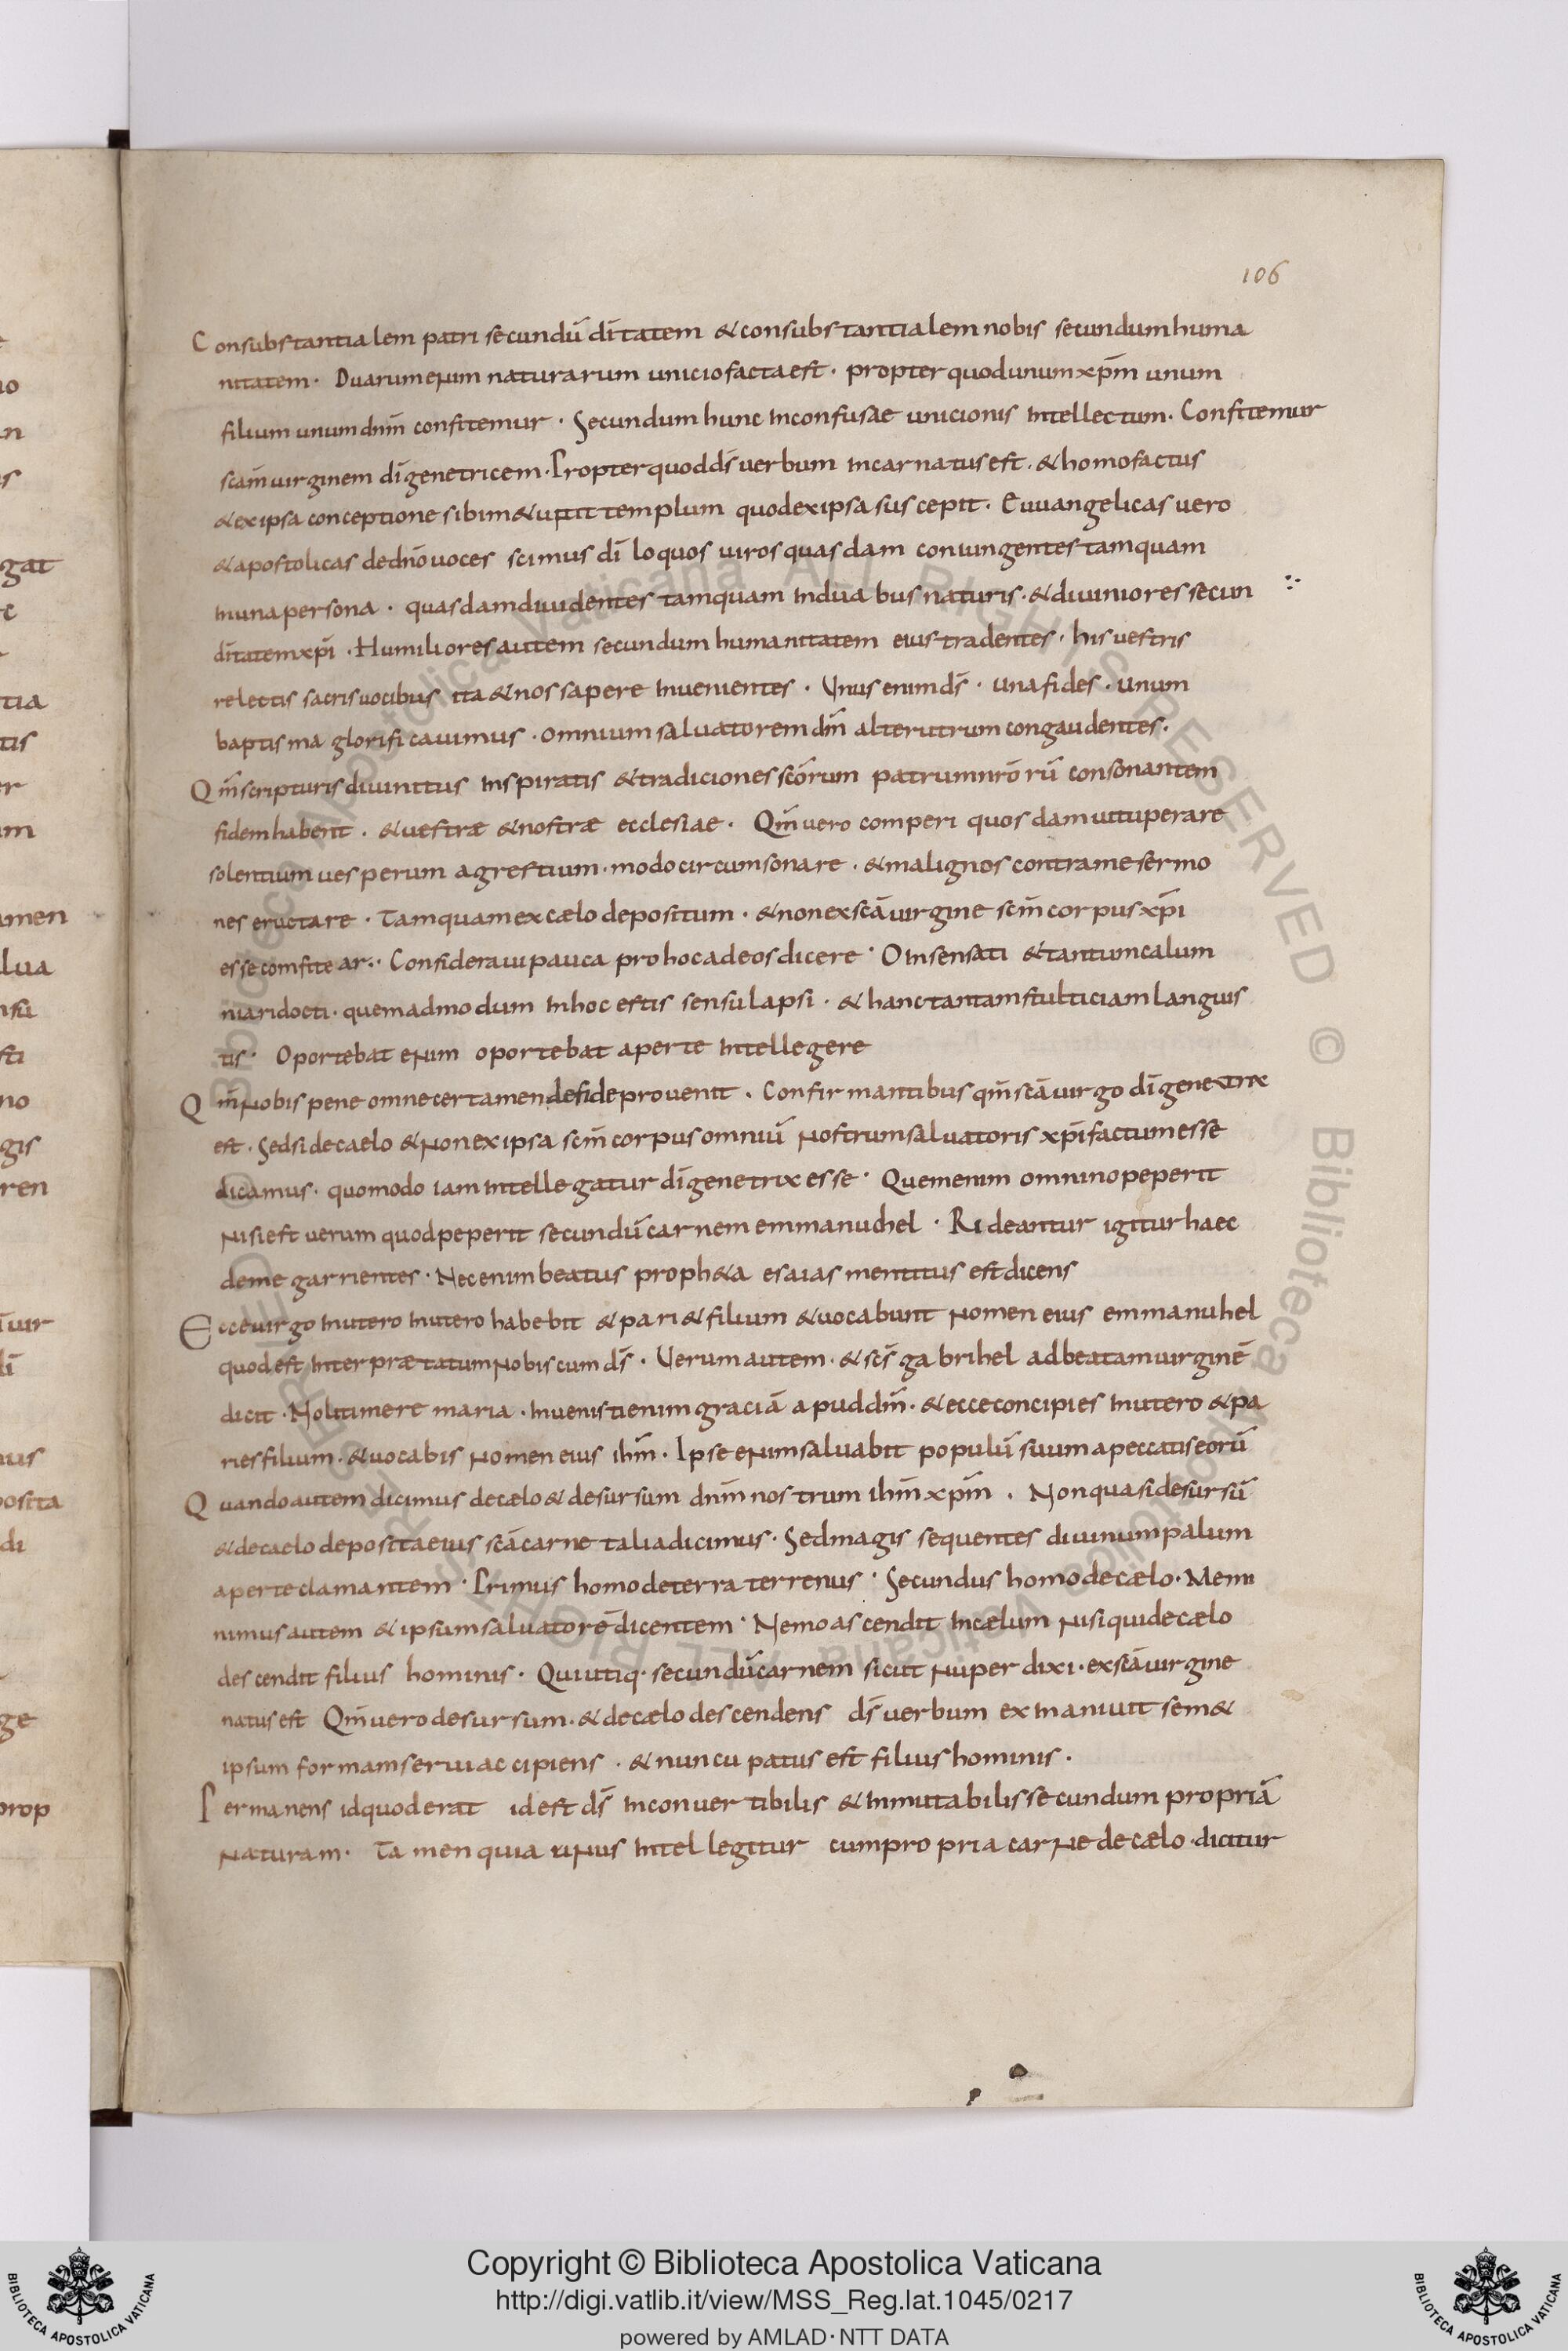 106
Consubstantialem patri secundū dī tatem & consubstantialem nobis secundum huma
nitatem · Duarum enim naturarum unicio facta est · propter quod unum xp̄m unum
filium unum dn̄m confitemur · Secundum hunc inconfusae unicionis intellectum · Confitemur
scām uirginem dī genetricem · Propter quod ds̄ uerbum incarnatus est · & homo factus
& ex ipsa conceptione sibim& templum quod ex ipsa suscepit · Euuangelicas uero
& apostolicas de dn̄o uoces scimus dī loquos uiros quasdam coniungentes tamquam
in una persona · quasdam diuidentes tamquam in duabus naturis · & diuiniores secun
dītatem xp̄i · Humiliores autem secundum humanitatem eius tradentes · his uestris
relectis sacris uocibus ita & nos sapere inuenientes · Unus enim ds̄ · una fides · unum
baptisma glorificauimus · omnium saluatorem dn̄m alterutrum congaudentes ·
Qm̄ scripturis diuinitus inspiratis & tradiciones scōrum patrum nrō rū consonantem
fidem haberit · & uestræ & nostræ ecclesiae · Qm̄ uero comperi quosdam uituperare
solentium uesperum agrestium · modo circumsonare · & malignos contra me sermo
nes eructare · Tamquam ex cælo depositum · & non ex scā uirgine scm̄ corpus xp̄i
esse comfitear · Consideraui pauca pro hoc ad eos dicere · O insensati & tantum calum
niari docti · quemadmodum in hoc estis sensu lapsi · & hanc tantam stulticiam languis
tis · Oportebat enim oportebat aperte intellegere
Qm̄ nobis pene omne certamen de fide prouenit · Confirmantibus qm̄ scā uirgo dī genetrix
est · Sed si de caelo & non ex ipsa scm̄ corpus omniū nostrum saluatoris xp̄i factum esse
dicamus · quomodo iam intellegatur dī genetrix esse · Quem enim omnino peperit
nisi est uerum quod peperit secundū carnem emmanuhel · Rideantur igitur haec
de me garrientes · Nec enim beatus proph&a esaias mentitus est dicens
Ecce uirgo in utero in utero habebit & pari& filium & uocabunt nomen eius emmanuhel
quod est inter prætatum nobiscum ds̄ · Uerum autem · & scs̄ gabrihel ad beatam uirginē
dicit · Noli timere maria · inuenisti enim graciā apud dm̄ · & ecce concipies in utero & pa
ries filium · & uocabis nomen eius ihm̄ · Ipse enim saluabit populū suum a peccatis eorū
Quando autem dicimus de cælo & desursum dnm̄ nostrum ihm̄ xpm̄ · Non quasi desursū
& de caelo deposita eius scā carne talia dicimus · Sed magis sequentes diuinum palum
aperte clamantem · Primus homo de terra terrenus · Secundus homo de cælo · Memi
nimus autem & ipsum saluatorē dicentem · Nemo ascendit in cælum nisi qui de cælo
descendit filius hominis · Qui utiq· secundū carnem sicut nuper dixi · ex scā uirgine
natus est Qm̄ uero desursum · & de cælo descendens ds̄ uerbum exinaniuit sem&
ipsum formam serui accipiens · & nuncupatus est filius hominis ·
Permanens id quod erat id est ds̄ inconuertibilis & inmutabilis secundum propriā
naturam · Tamen quia unus intellegitur cum propria carne de cælo dicitur
Copyright © Biblioteca Apostolica Vaticana
http://digi.vatlib.it/view/MSS_Reg.lat.1045/0217
powered by AMLAD·NTT DATA